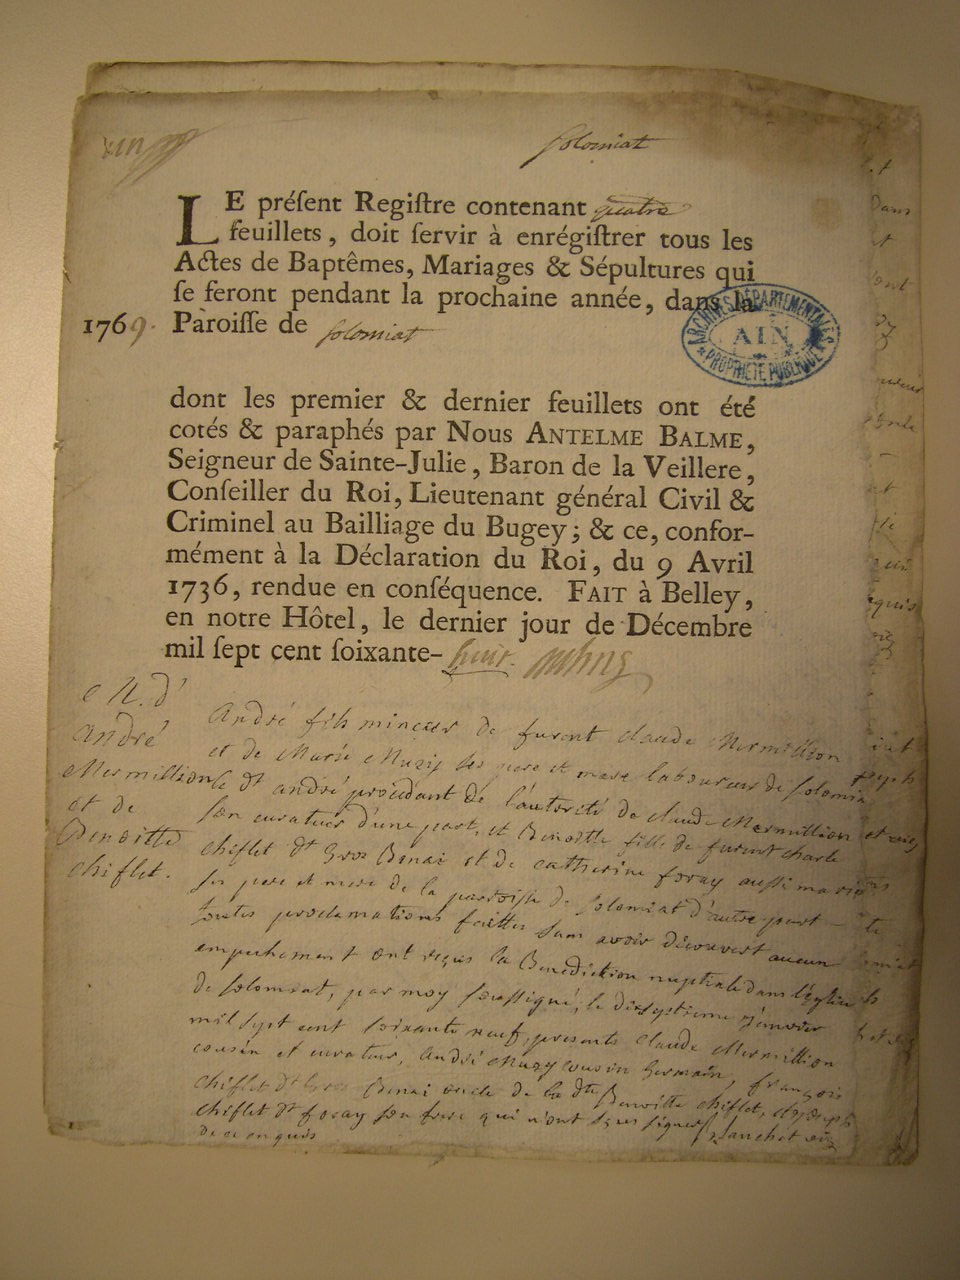 Solomiat
LE préſent Regiſtre contenant quatre
feuillets, doit ſervir à enrégiſtrer tous les
Actes de Baptêmes, Mariages & Sépultures qui
ſe feront pendant la prochaine année, dans la
1769. Paroiſſe de Solomiat
ARCHIVES DÉPARTEMENTALES
AIN
PROPRIÉTÉ PUBLIQUE
dont les premier & dernier feuillets ont été
cotés & paraphés par Nous ANTELME BALME,
Seigneur de Sainte-Julie, Baron de la Veillere,
Conſeiller du Roi, Lieutenant général Civil &
Criminel au Bailliage du Bugey; & ce, confor-
mément à la Déclaration du Roi, du 9 Avril
1736, rendue en conſéquence. FAIT à Belley,
en notre Hôtel, le dernier jour de Décembre
mil ſept cent ſoixante-huit.
André
Mermillion
et de
Benoitte
chiflet.
André fils mineur de furent claude Mermillion
et de Marie Muzy ses pere et mere laboureur de solomia
le dt andré procédant de l'autorité de claude Mermillion
son curateur d'une part, et Benoitte fille de furent charle
chiflet dt Gros Benai et de catherine foray aussi mariés
ses pere et mere de la paroisse de solomiat d'autre part
toutes proclamations faittes sans avoir découvert aucun
empechement ont reçus la Benediction nuptiale dans l'église
de solomiat, par moy soussigné, le dixseptieme janvier
mil sept cent soixante neuf, presents claude Mermillion
cousin et curateur, André Muzy cousin Germain, françois
chiflet dt Gros Benai oncle de la dte Benoitte chiflet,
chiflet dt foray son frere qui n'ont signer
de ce enquis